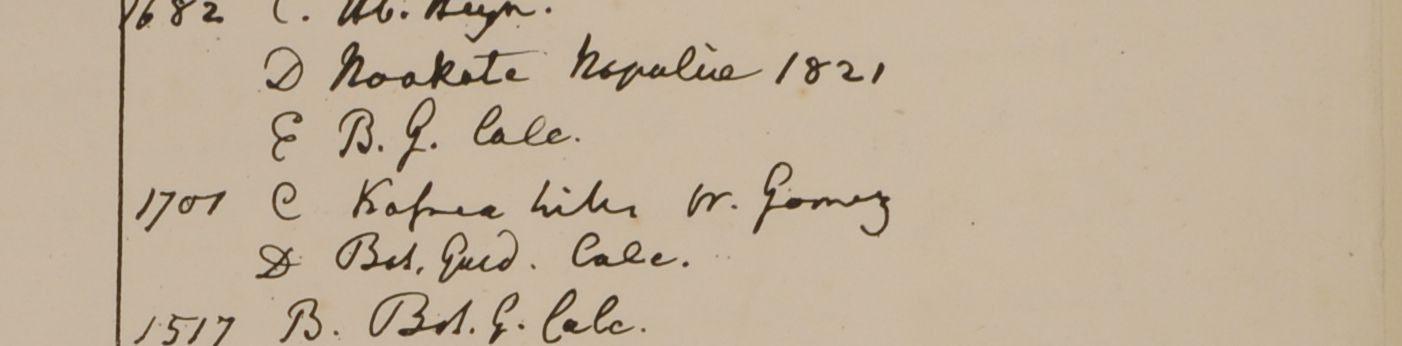 1682 C. Hb. Heyn.
D Noakote Napaliæ 1821
E B. G. Calc.
1701 C hills W. Gomez
D Bot. Gard. Calc.
1517 B. Bot. G. Calc.